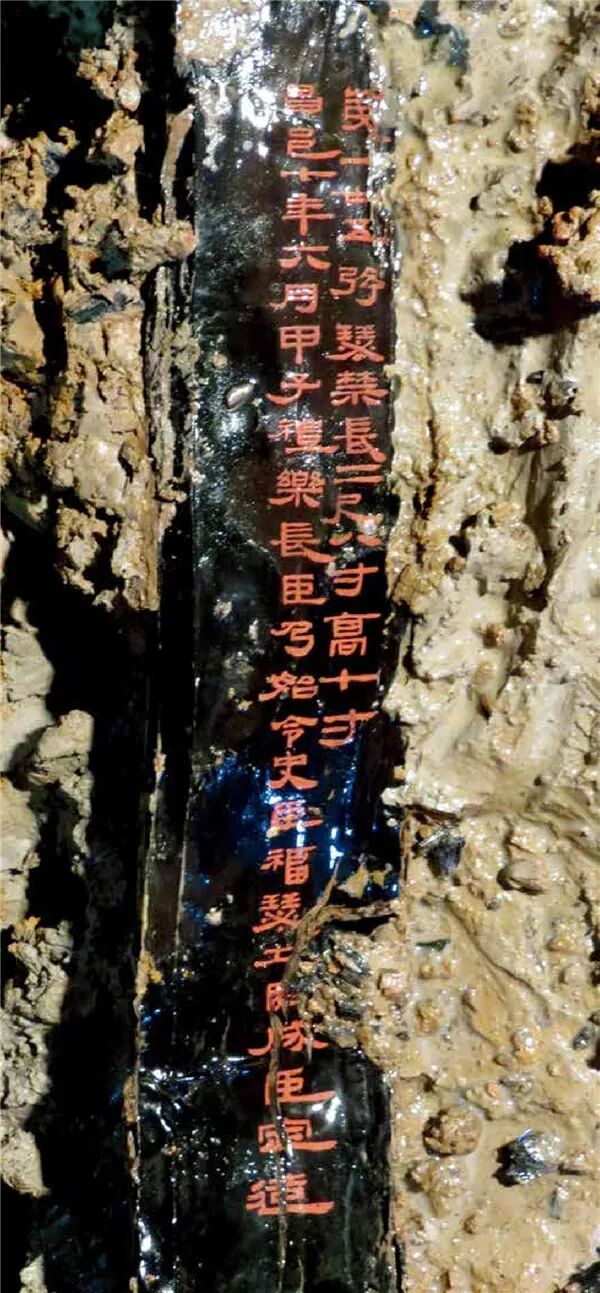 第一廿五弦瑟禁長二尺八寸高七寸
昌邑七年六月甲子禮樂長臣乃始令史臣福瑟工臣成臣定造